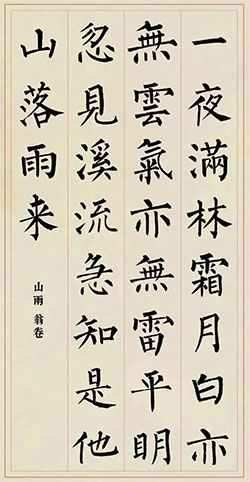 一夜滿林霜月白亦
無雲氣亦無雷平明
忽見溪流急知是他
山落雨来
山雨 翁卷